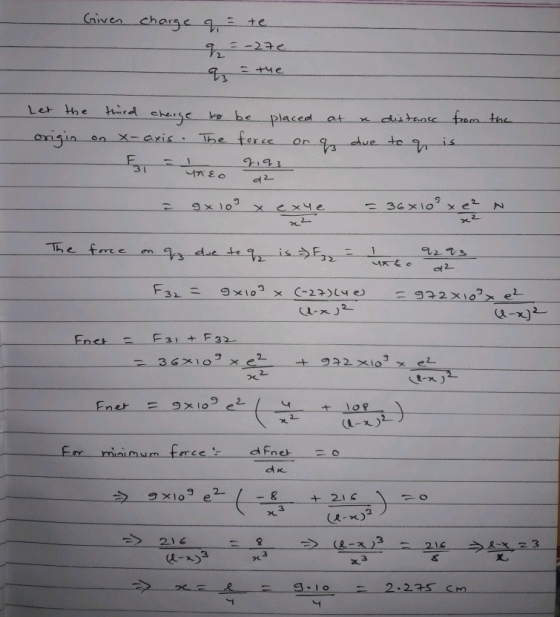 Given charge q₁ = +e
q₂ = -27e
q₃ = +4e
Let the third charge to be placed at x distance from the
origin on x-axis. The force on q₃ due to q₁ is
F₃₁ = 1/4πε₀ q₁q₃/d²
= 9×10⁹ × e×4e/x² = 36×10⁹ × e²/x² N
The force on q₃ due to q₂ is ⇒ F₃₂ = 1/4πε₀ q₂q₃/d²
F₃₂ = 9×10⁹ × (-27)(4e)/(l-x)² = 972×10⁹ × e²/(l-x)²
Fnet = F₃₁ + F₃₂
= 36×10⁹ × e²/x² + 972×10⁹ × e²/(l-x)²
Fnet = 9×10⁹ e² (4/x² + 108/(l-x)²)
For minimum force:- dFnet/dx = 0
⇒ 9×10⁹ e² (-8/x³ + 216/(l-x)³) = 0
⇒ 216/(l-x)³ = 8/x³ ⇒ (l-x)³/x³ = 216/8 ⇒ l-x/x = 3
⇒ x = l/4 = 9.10/4 = 2.275 cm